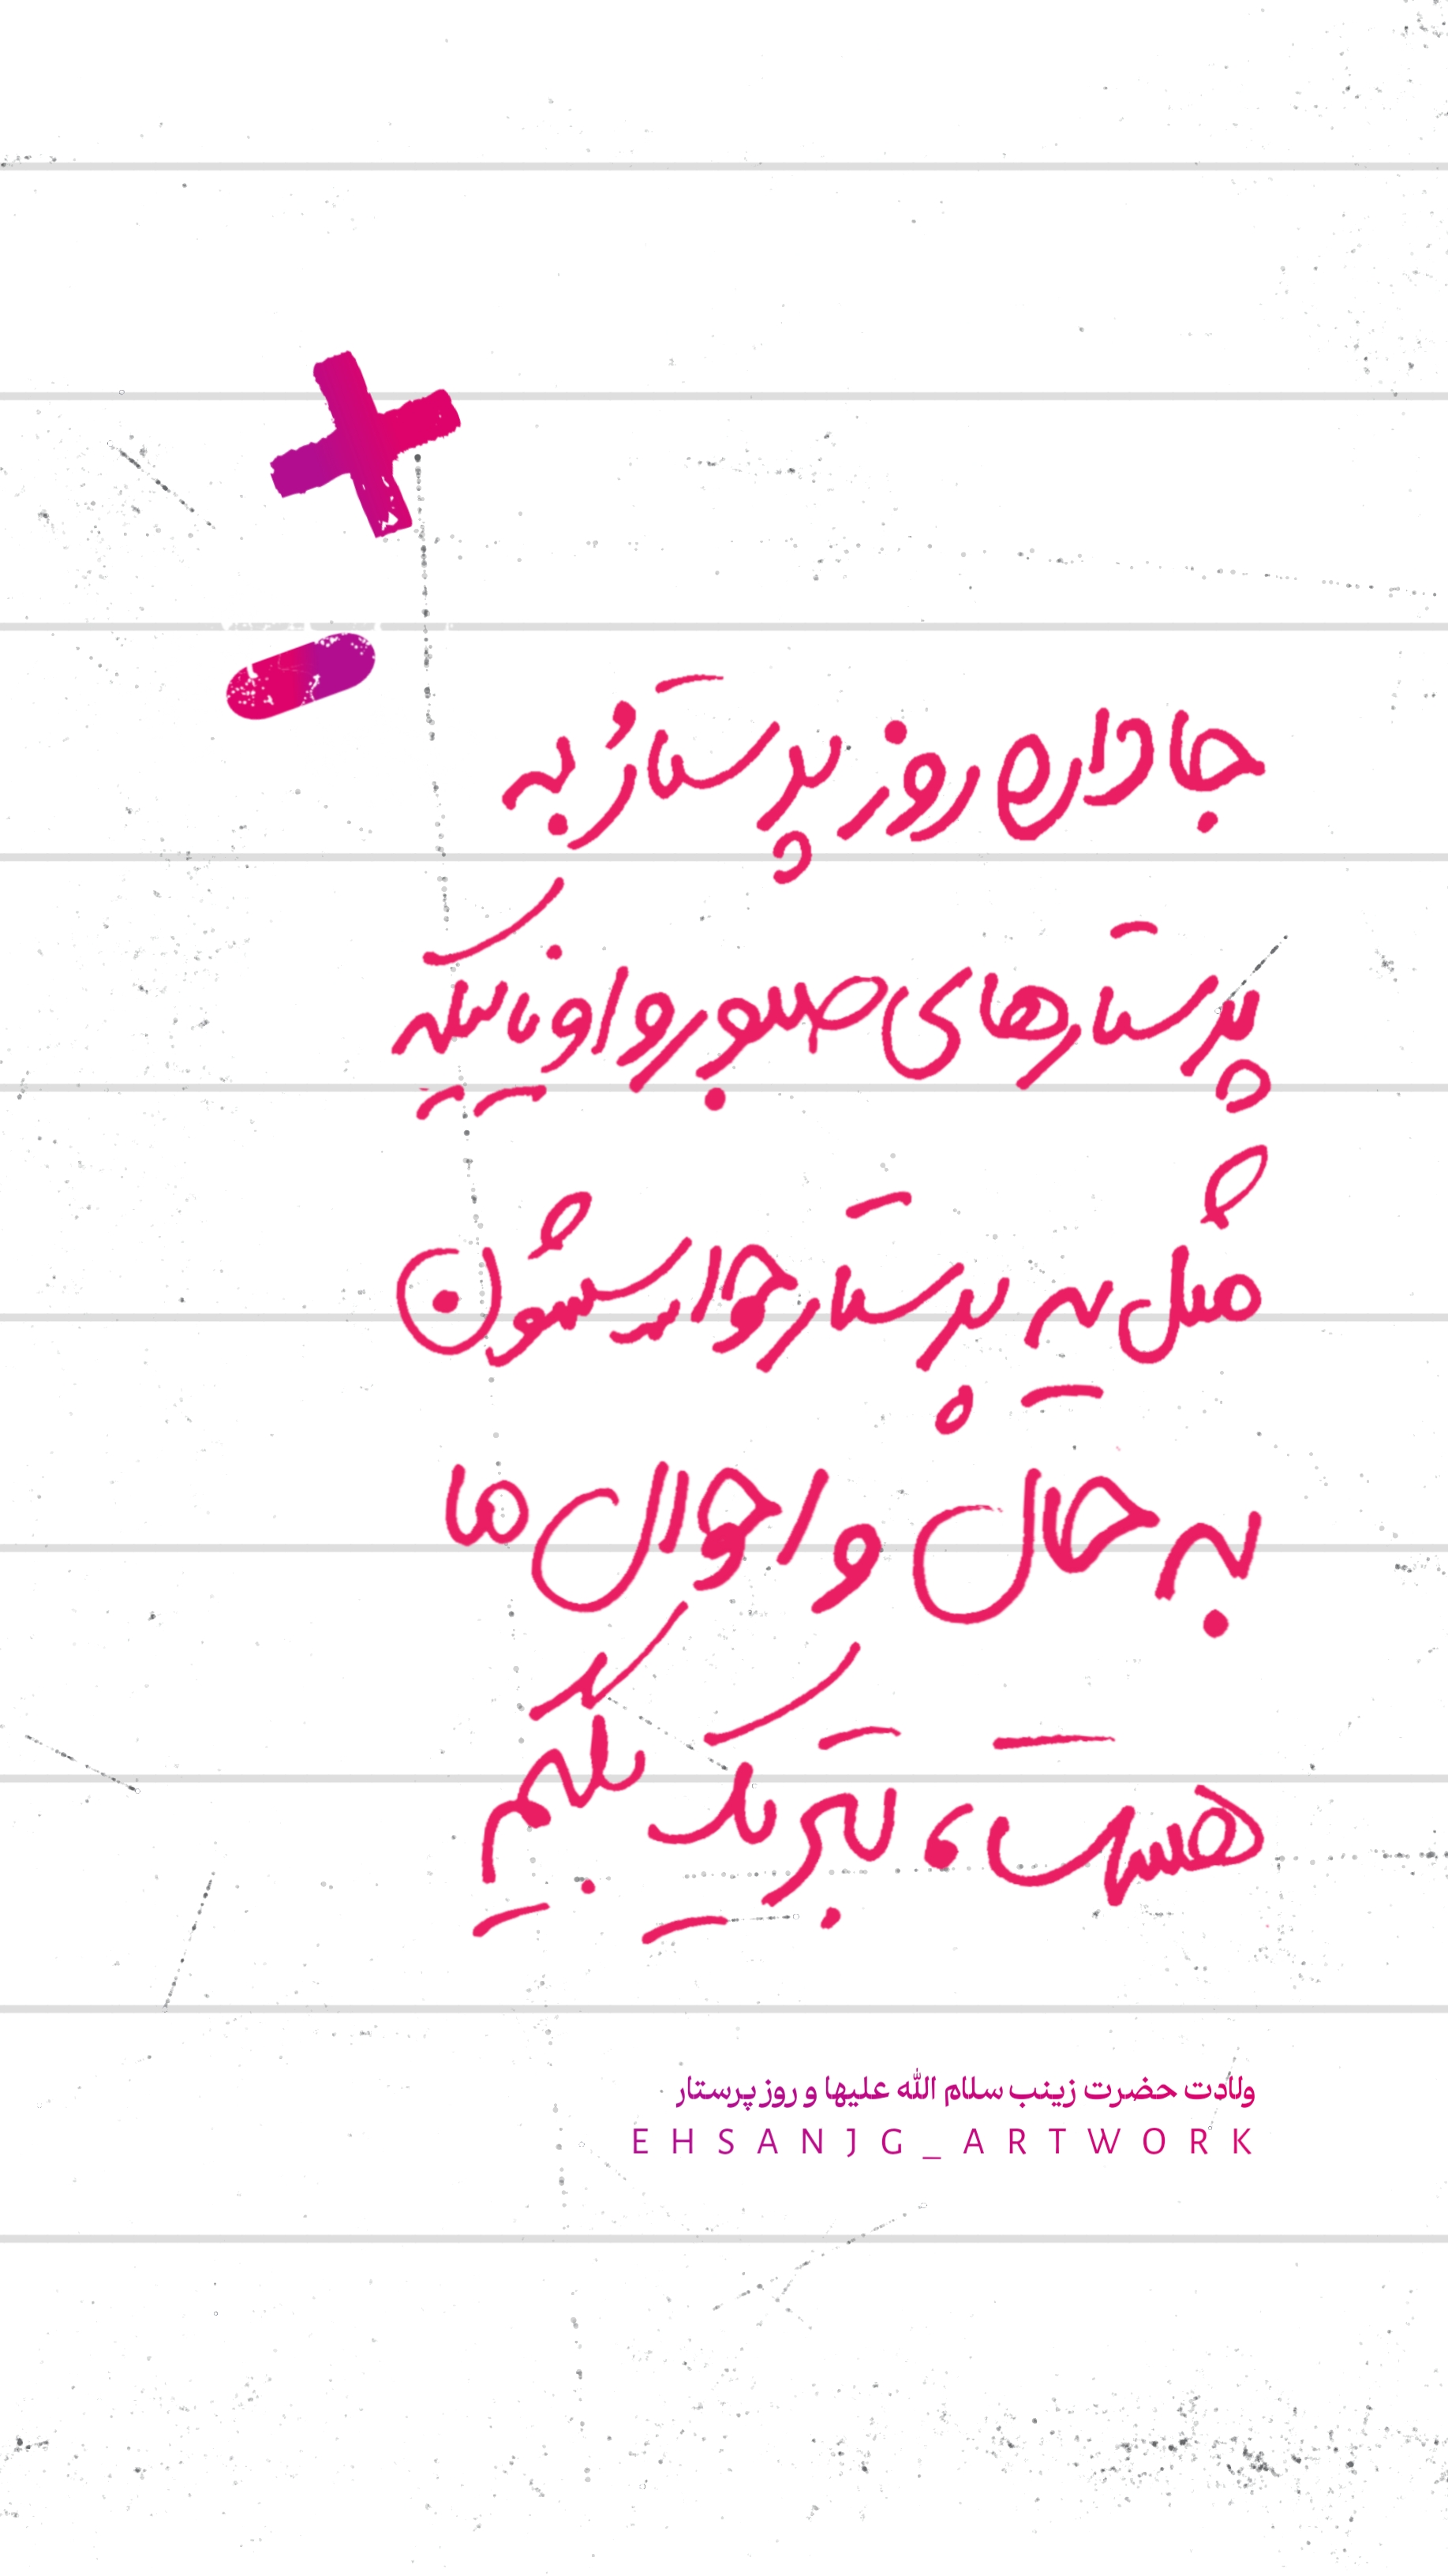 جا داره روز پرستارُ به
پرستارهای صبور و اونایی که
مثل یه پرستار حواسشون
به حال و احوال ما
هست، تبریک بگیم
ولادت حضرت زینب سلام الله علیها و روز پرستار
EHSANJG_ARTWORK